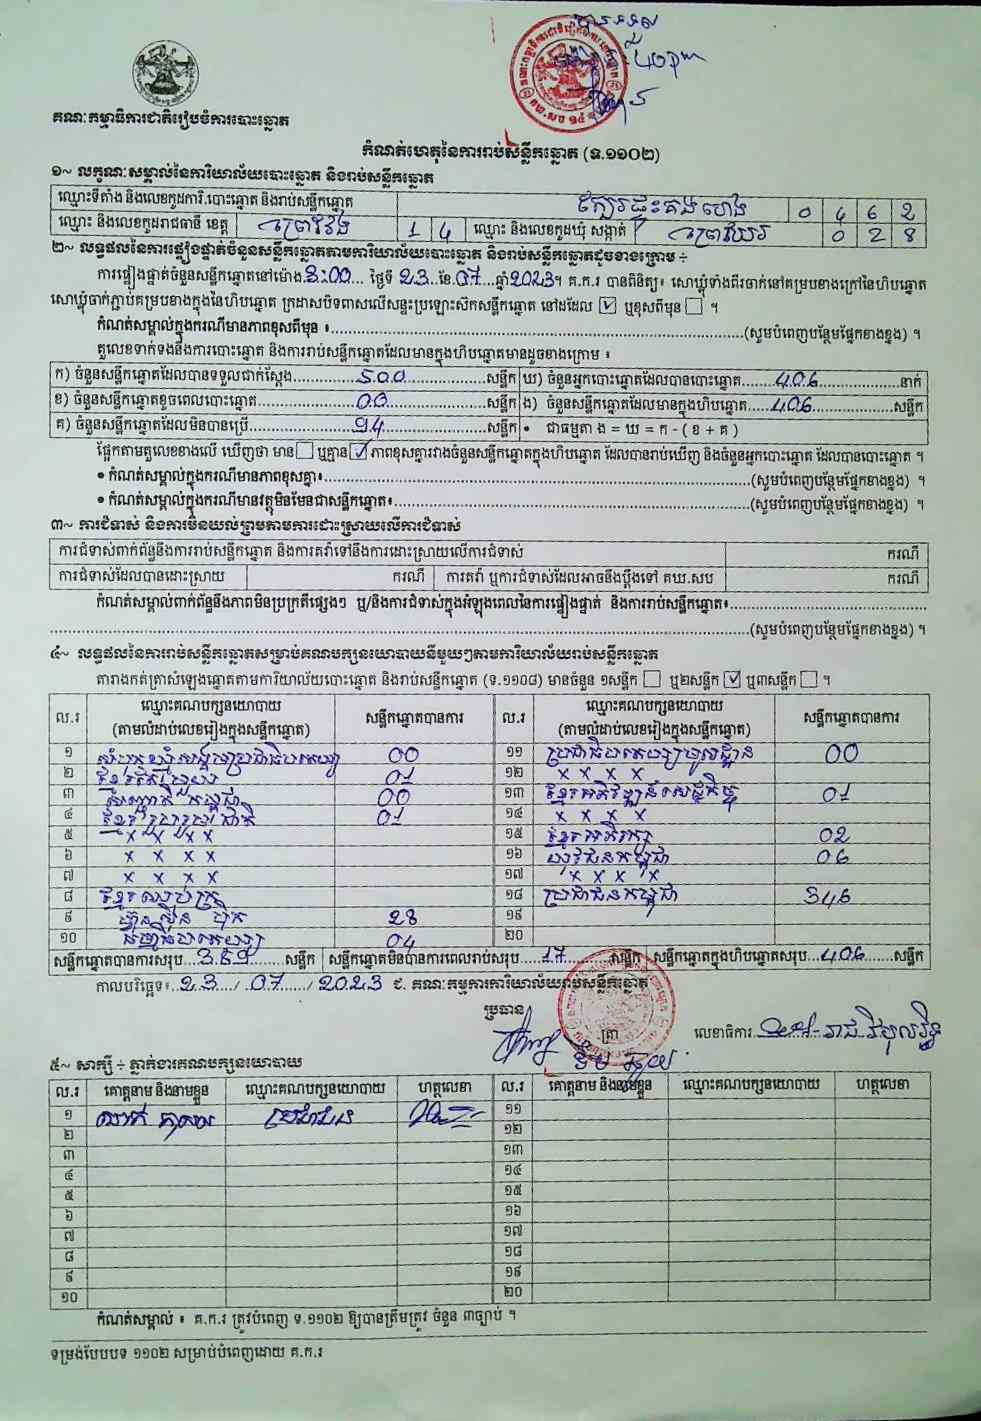 គណៈកម្មាធិការជាតិរៀបចំការបោះឆ្នោត
កំណត់ហេតុនៃការរាប់សន្លឹកឆ្នោត (ទ.១១០២)
១~ លក្ខណៈសម្គាល់នៃការិយាល័យបោះឆ្នោត និងរាប់សន្លឹកឆ្នោត
ឈ្មោះទីតាំង និងលេខកូដការិ.បោះឆ្នោត និងរាប់សន្លឹកឆ្នោត 0 4 6 2
ឈ្មោះ និងលេខកូដរាជធានី ខេត្ត ព្រៃវែង 1 4 ឈ្មោះ និងលេខកូដឃុំ សង្កាត់ 0 2 8
២~ លទ្ធផលនៃការផ្ទៀងផ្ទាត់ចំនួនសន្លឹកឆ្នោតតាមការិយាល័យបោះឆ្នោត និងរាប់សន្លឹកឆ្នោតដូចខាងក្រោម ៖
ការផ្ទៀងផ្ទាត់ចំនួនសន្លឹកឆ្នោតនៅម៉ោង 3:00 ថ្ងៃទី 23 ខែ 07 ឆ្នាំ 2023។ គ.ក.រ បានពិនិត្យ៖ សោឃ្លុំទាំងពីរចាក់នៅគម្របខាងក្រៅនៃហិបឆ្នោត
សោឃ្លុំចាក់ភ្ជាប់គម្របខាងក្នុងនៃហិបឆ្នោត ក្រដាសបិទពាសលើសន្ទះប្រឡោះស៊ីកសន្លឹកឆ្នោត នៅដដែល ✓ ឬខុសពីមុន ។
កំណត់សម្គាល់ក្នុងករណីមានភាពខុសពីមុន ៖ (សូមបំពេញបន្ថែមផ្នែកខាងខ្នង) ។
តួលេខទាក់ទងនឹងការបោះឆ្នោត និងការរាប់សន្លឹកឆ្នោតដែលមានក្នុងហិបឆ្នោតមានដូចខាងក្រោម ៖
ក) ចំនួនសន្លឹកឆ្នោតដែលបានទទួលជាក់ស្តែង 500 សន្លឹក ឃ) ចំនួនអ្នកបោះឆ្នោតដែលបានបោះឆ្នោត 406 នាក់
ខ) ចំនួនសន្លឹកឆ្នោតខូចពេលបោះឆ្នោត 00 សន្លឹក ង) ចំនួនសន្លឹកឆ្នោតដែលមានក្នុងហិបឆ្នោត 406 សន្លឹក
គ) ចំនួនសន្លឹកឆ្នោតដែលមិនបានប្រើ 94 សន្លឹក • ជាធម្មតា ង = ឃ = ក - ( ខ + គ )
ផ្អែកតាមតួលេខខាងលើ ឃើញថា មាន ឬគ្មាន ✓ ភាពខុសគ្នារវាងចំនួនសន្លឹកឆ្នោតក្នុងហិបឆ្នោត ដែលបានរាប់ឃើញ និងចំនួនអ្នកបោះឆ្នោត ដែលបានបោះឆ្នោត ។
• កំណត់សម្គាល់ក្នុងករណីមានភាពខុសគ្នា៖ (សូមបំពេញបន្ថែមផ្នែកខាងខ្នង) ។
• កំណត់សម្គាល់ក្នុងករណីមានវត្ថុមិនមែនជាសន្លឹកឆ្នោត៖ (សូមបំពេញបន្ថែមផ្នែកខាងខ្នង) ។
៣~ ការជំទាស់ និងការមិនយល់ព្រមតាមការដោះស្រាយលើការជំទាស់
ការជំទាស់ពាក់ព័ន្ធនឹងការរាប់សន្លឹកឆ្នោត និងការតវ៉ាទៅនឹងការដោះស្រាយលើការជំទាស់ ករណី
ការជំទាស់ដែលបានដោះស្រាយ ករណី ការតវ៉ា ឬការជំទាស់ដែលអាចនឹងប្តឹងទៅ គឃ.សប ករណី
កំណត់សម្គាល់ពាក់ព័ន្ធនឹងភាពមិនប្រក្រតីផ្សេងៗ ឬ/និងការជំទាស់ក្នុងអំឡុងពេលនៃការផ្ទៀងផ្ទាត់ និងការរាប់សន្លឹកឆ្នោត៖
(សូមបំពេញបន្ថែមផ្នែកខាងខ្នង) ។
៤~ លទ្ធផលនៃការរាប់សន្លឹកឆ្នោតសម្រាប់គណបក្សនយោបាយនីមួយៗតាមការិយាល័យរាប់សន្លឹកឆ្នោត
តារាងកត់ត្រាសំឡេងឆ្នោតតាមការិយាល័យបោះឆ្នោត និងរាប់សន្លឹកឆ្នោត (ទ.១១០៨) មានចំនួន ១សន្លឹក ឬ២សន្លឹក ✓ ឬ៣សន្លឹក ។
ល.រ ឈ្មោះគណបក្សនយោបាយ (តាមលំដាប់លេខរៀងក្នុងសន្លឹកឆ្នោត) សន្លឹកឆ្នោតបានការ ល.រ ឈ្មោះគណបក្សនយោបាយ (តាមលំដាប់លេខរៀងក្នុងសន្លឹកឆ្នោត) សន្លឹកឆ្នោតបានការ
១ 00 ១១ 00
២ 01 ១២ x x x x
៣ 00 ១៣ 01
៤ 01 ១៤ x x x x
៥ x x x x ១៥ 02
៦ x x x x ១៦ យុវជនកម្ពុជា 06
៧ x x x x ១៧ x x x x
៨ ១៨ ប្រជាជនកម្ពុជា 346
៩ ហ្វ៊ុនស៊ិនប៉ិច 28 ១៩
១០ 04 ២០
សន្លឹកឆ្នោតបានការសរុប 389 សន្លឹក សន្លឹកឆ្នោតមិនបានការពេលរាប់សរុប 17 សន្លឹក សន្លឹកឆ្នោតក្នុងហិបឆ្នោតសរុប 406 សន្លឹក
កាលបរិច្ឆេទ៖ 23 / 07 / 2023 ជ. គណៈកម្មការការិយាល័យរាប់សន្លឹកឆ្នោត
ប្រធាន ត្រា លេខាធិការ
៥~ សាក្សី ៖ ភ្នាក់ងារគណបក្សនយោបាយ
ល.រ គោត្តនាម និងនាមខ្លួន ឈ្មោះគណបក្សនយោបាយ ហត្ថលេខា ល.រ គោត្តនាម និងនាមខ្លួន ឈ្មោះគណបក្សនយោបាយ ហត្ថលេខា
១ ១១
២ ១២
៣ ១៣
៤ ១៤
៥ ១៥
៦ ១៦
៧ ១៧
៨ ១៨
៩ ១៩
១០ ២០
កំណត់សម្គាល់ ៖ គ.ក.រ ត្រូវបំពេញ ទ.១១០២ ឱ្យបានត្រឹមត្រូវ ចំនួន ៣ច្បាប់ ។
ទម្រង់បែបបទ ១១០២ សម្រាប់បំពេញដោយ គ.ក.រ